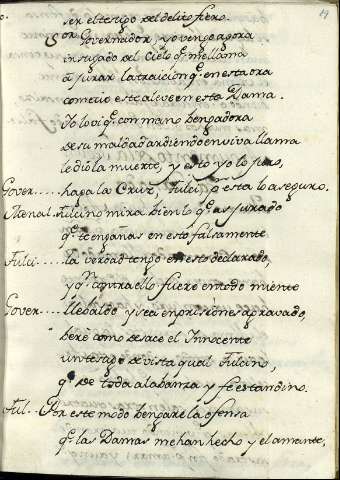 ser el testigo del delito fiero.
Sor Governador, yo vengo agora
inspirado del Cielo q. me llama
a jurar la traicion q. en esta ora
cometio este aleve en esta Dama.
Yo lo vi q. con mano vengadora
de su maldad ardiendo en viva llama
le dió la muerte, y esto yo lo juro,
Gover.... haga la Cruz, Fulci. esta lo aseguro.
Fulcino mira bien lo q. as jurado
q. te engañas en esto falsamente
Fulci.... la verdad tengo en esto declarado,
y q.n contra ello fuere en todo miente
Gover.... llebadlo y sea en prisiones agravado,
veré como se ace el Innocente
un testigo de vista qual Fulcino,
q. de toda alabanza y fe es tan dino.
Ful... Por este modo bengaré la ofensa
q. las Damas me han hecho y el amante,